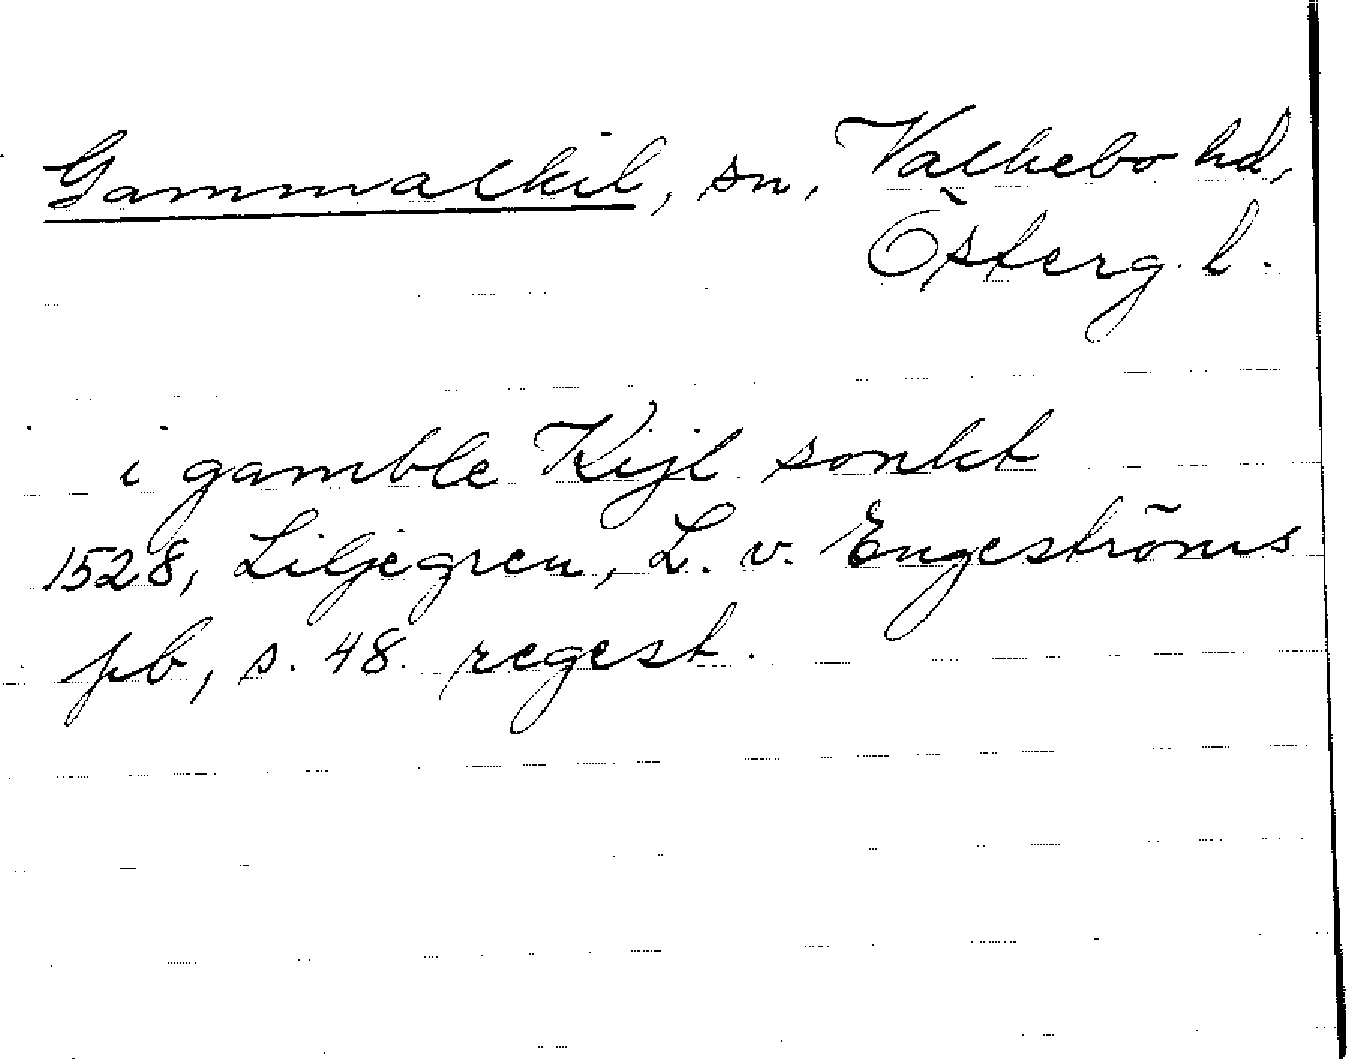 Gammalkil, sn, Valkebo hd,
Österg. l.
i gamble Kijl sonkt
1528, Liljegren, L. v. Engeströms
pb, s. 48 regest.